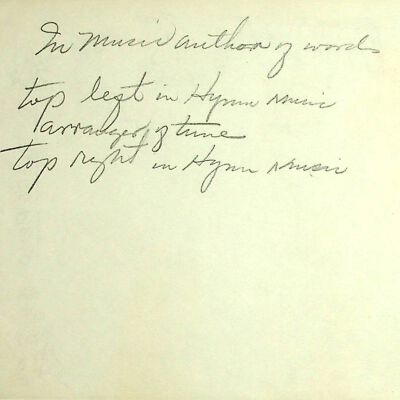 In Music author of words
top left in Hymn Music
arranger of tune
top right in Hymn Music